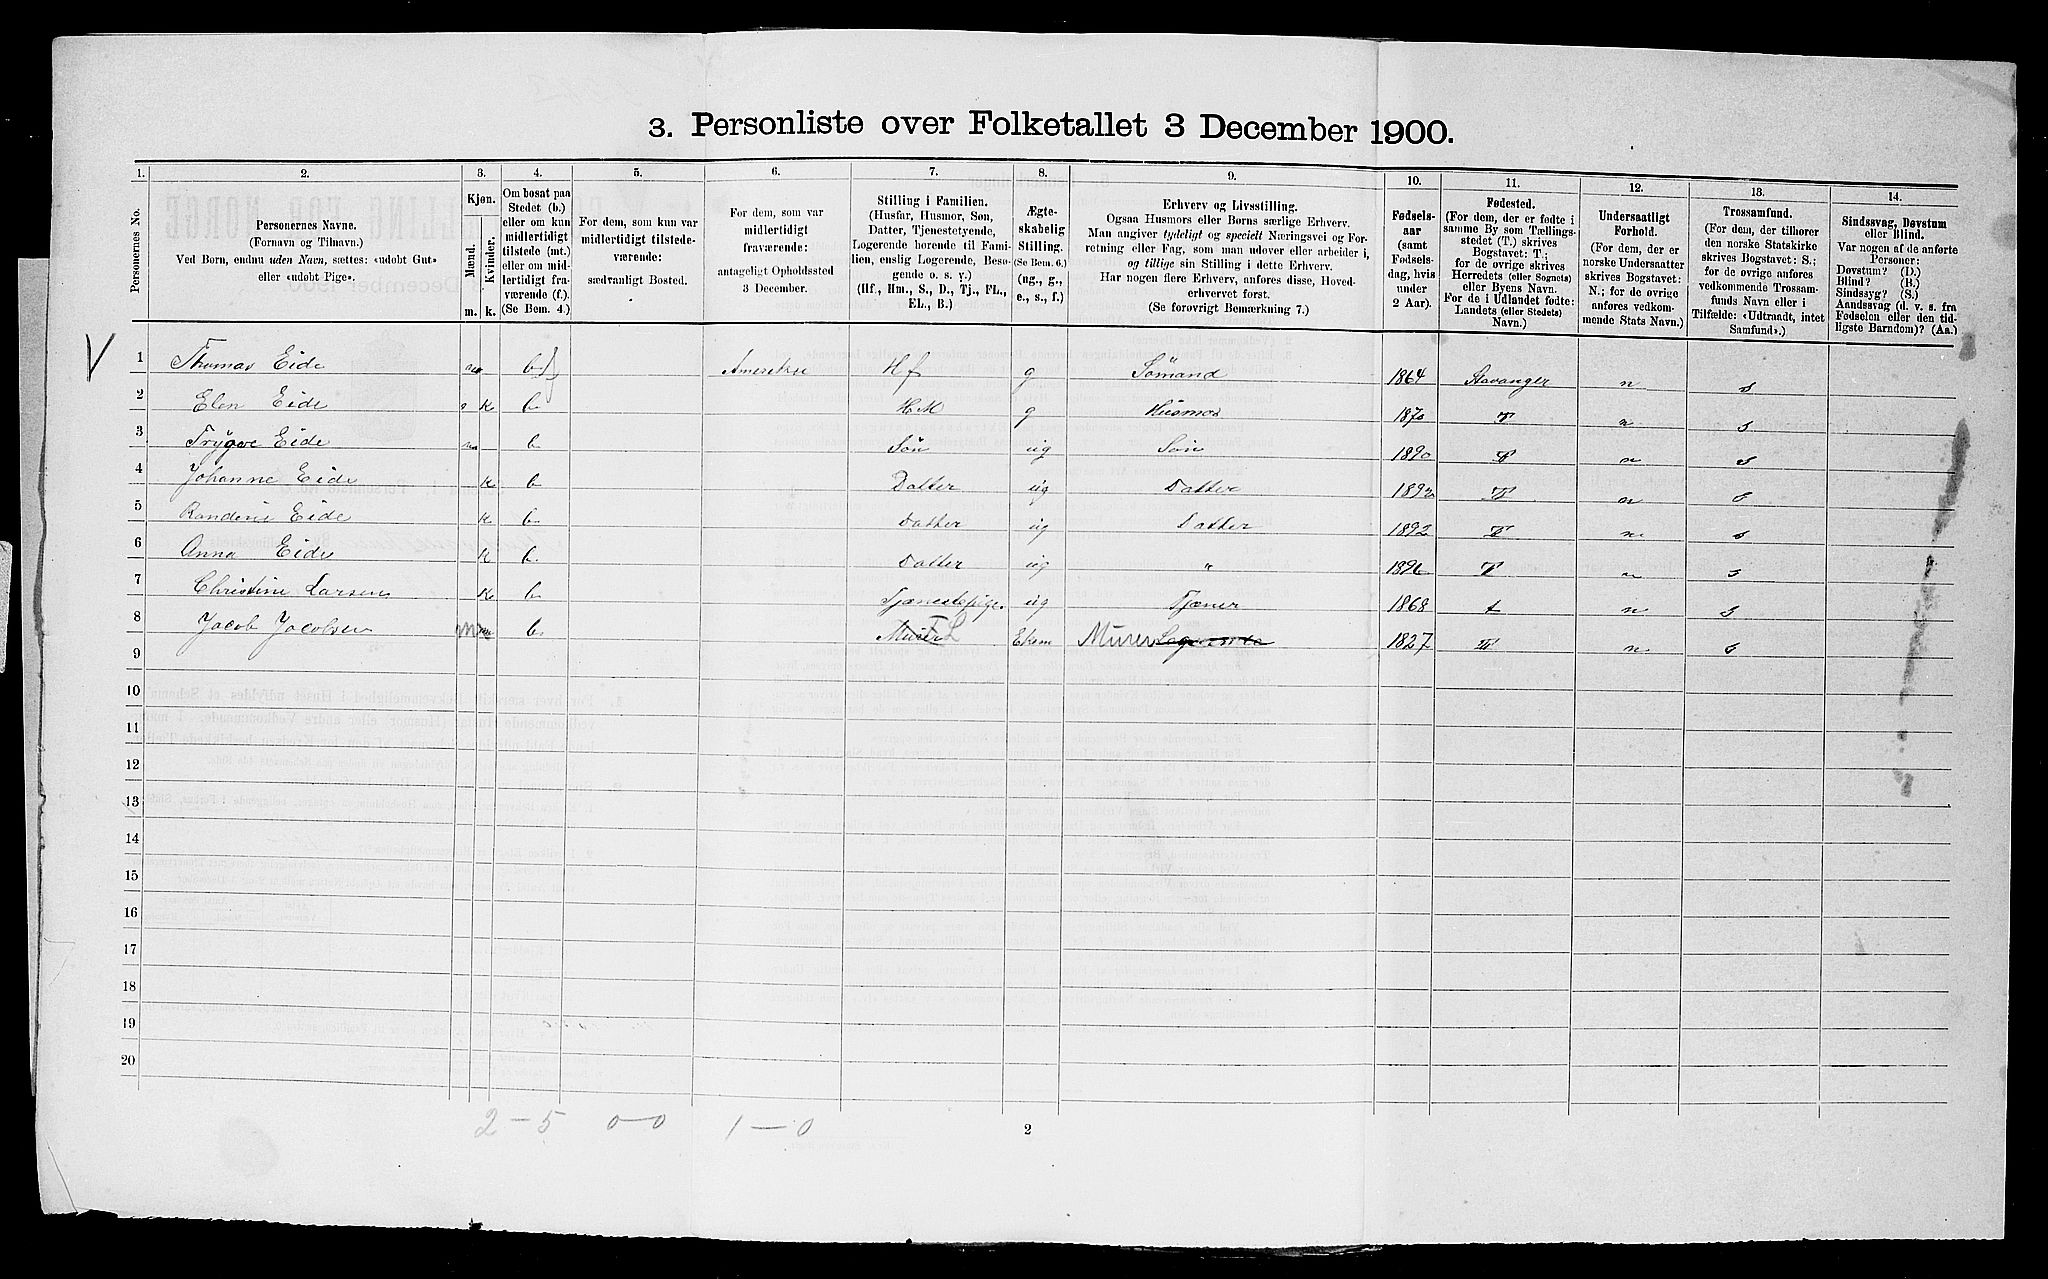 3. Personliste over Folketallet 3 December 1900.
1. 2. 3. 4. 5. 6. 7. 8. 9. 10. 11. 12. 13. 14.
Personernes No.
Personernes Navne.
(Fornavn og Tilnavn.)
Ved Børn, endnu uden Navn, sættes: «udøbt Gut»
eller «udøbt Pige».
Kjøn.
Mænd.
Kvinder.
m. k.
Om bosat paa
Stedet (b.)
eller om kun
midlertidigt
tilstede (mt.)
eller om mid-
lertidigt fra-
værende (f.).
(Se Bem. 4.)
For dem, som kun var
midlertidigt tilstede-
værende:
sædvanligt Bosted.
For dem, som var
midlertidigt
fraværende:
antageligt Opholdssted
3 December.
Stilling i Familien.
(Husfar, Husmor, Søn,
Datter, Tjenestetyende,
Logerende hørende til Fami-
lien, enslig Logerende, Besø-
gende o. s. v.)
(Hf., Hm., S., D., Tj., FL.,
EL., B.)
Ægte-
skabelig
Stilling.
(Se Bem. 6.)
(ug., g.,
e., s., f.)
Erhverv og Livsstilling.
Ogsaa Husmors eller Børns særlige Erhverv.
Man angiver tydeligt og specielt Næringsvei og For-
retning eller Fag, som man udøver eller arbeider i,
og tillige sin Stilling i dette Erhverv.
Har nogen flere Erhverv, anføres disse, Hoved-
erhvervet først.
(Se forøvrigt Bemærkning 7.)
Fødsels-
aar
(samt
Fødsels-
dag, hvis
under
2 Aar).
Fødested.
(For dem, der er fødte i
samme By som Tællings-
stedet (T.) skrives
Bogstavet: T.;
for de øvrige skrives
Herredets (eller Sognets)
eller Byens Navn.
For de i Udlandet fødte:
Landets (eller Stedets)
Navn.)
Undersaatligt
Forhold.
(For dem, der er
norske Undersaatter
skrives Bogstavet:
N.; for de øvrige
anføres vedkom-
mende Stats Navn.)
Trossamfund.
(For dem, der tilhører
den norske Statskirke
skrives Bogstavet: S.;
for de øvrige anføres
vedkommende Trossam-
funds Navn eller i
Tilfælde: «Udtraadt, intet
Samfund».)
Sindssvag, Døvstum
eller Blind.
Var nogen af de anførte
Personer:
Døvstum? (D.)
Blind? (B.)
Sindssyg? (S.)
Aandssvag (d. v. s. fra
Fødselen eller den tid-
ligste Barndom)? (Aa.)
V
1 Thomas Eide m b f Amerika Hf g Sømand 1864 Stavanger n s
2 Elen Eide k b HM g Husmor 1870 T n s
3 Trygve Eide m b Søn ug Søn 1890 T n s
4 Johanne Eide k b Datter ug Datter 1892 T n s
5 Randine Eide k b Datter ug Datter 1892 T n s
6 Anna Eide k b Datter ug " 1896 T n s
7 Christine Larsen k b Tjenestepige ug Tjener 1868 t n s
8 Jacob Jacobsen m b. Murer L Murer 1827 T n s
9
10
11
12
13
14
15
16
17
18
19
20
2 - 5 0 - 0 1 - 0
2